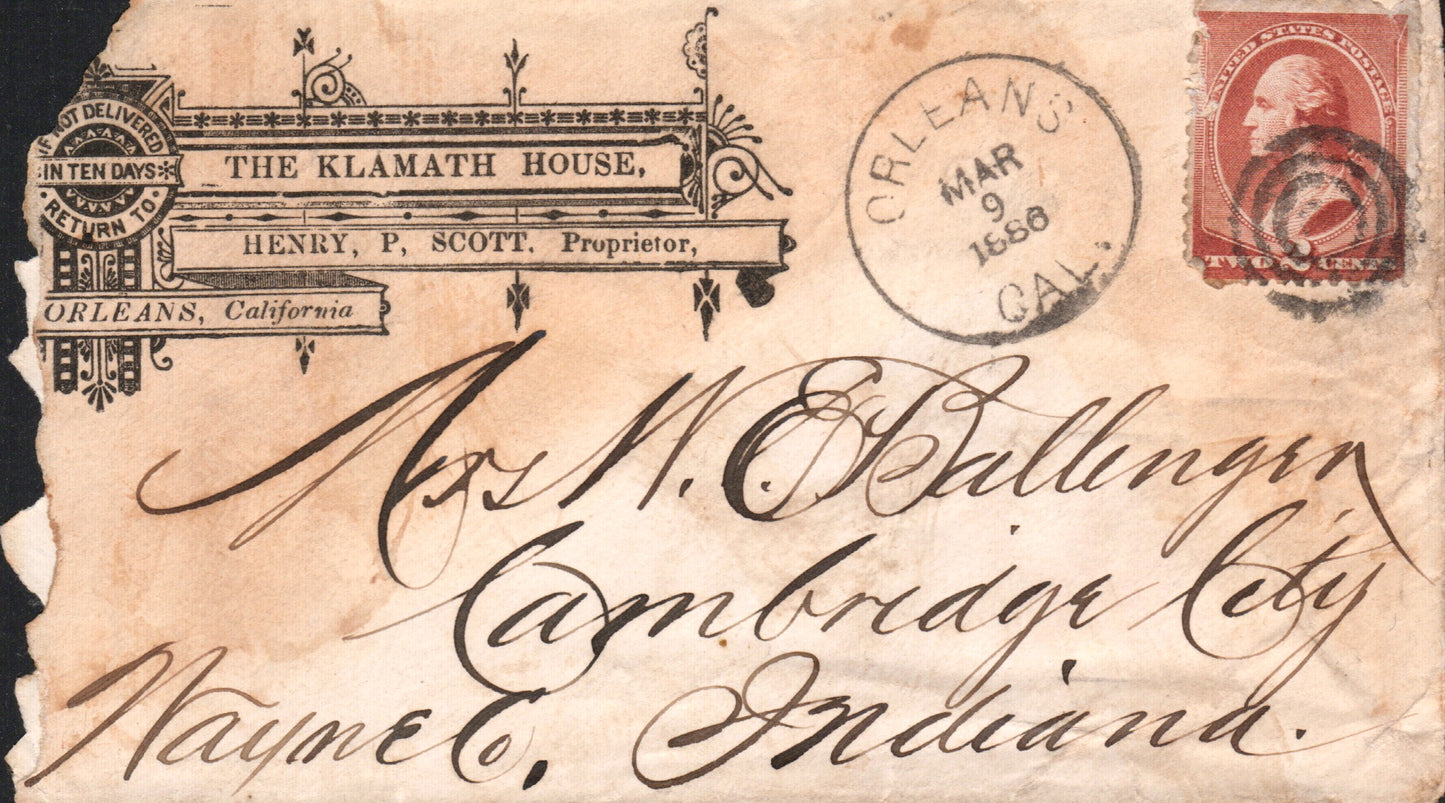 IF NOT DELIVERED
IN TEN DAYS
RETURN TO
THE KLAMATH HOUSE,
HENRY, P, SCOTT. Proprietor,
ORLEANS, California
ORLEANS
MAR
9
1886
CAL.
UNITED STATES POSTAGE
TWO 2 CENTS
Mrs W. E. Ballenger
Cambridge City
Wayne Co, Indiana.